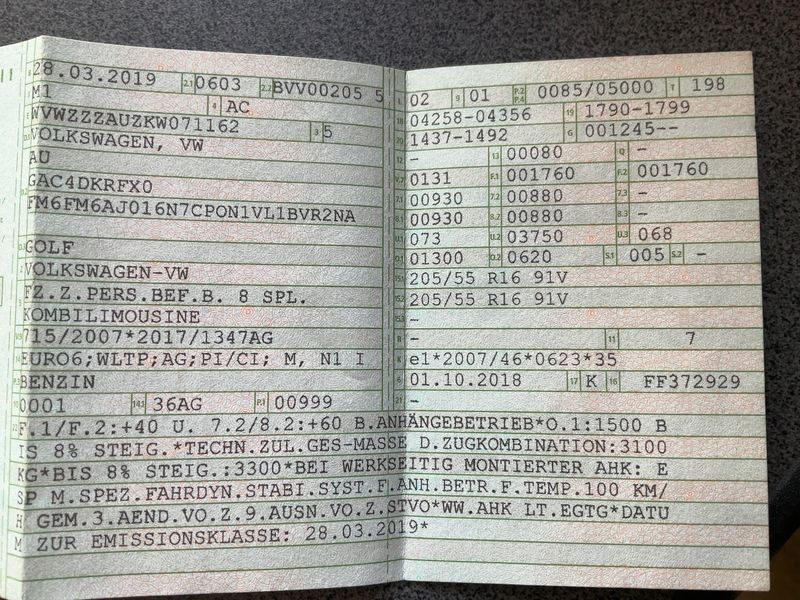 28.03.2019 2.1 0603 2.2 BVV00205 5
M1 4 AC
WVWZZZAUZKW071162 3 5
VOLKSWAGEN, VW
AU
GAC4DKRFX0
FM6FM6AJ016N7CPON1VL1BVR2NA
GOLF
VOLKSWAGEN-VW
FZ.Z.PERS.BEF.B. 8 SPL.
KOMBILIMOUSINE
715/2007*2017/1347AG
EURO6;WLTP;AG;PI/CI; M, N1 I
BENZIN
0001 14.1 36AG P.1 00999
L 02 9 01 P.2 P.4 0085/05000 T 198
18 04258-04356 19 1790-1799
20 1437-1492 G 001245--
12 - 13 00080 Q -
V.7 0131 F.1 001760 F.2 001760
7.1 00930 7.2 00880 7.3 -
8.1 00930 8.2 00880 8.3 -
U.1 073 U.2 03750 U.3 068
O.1 01300 O.2 0620 S.1 005 S.2 -
15.1 205/55 R16 91V
15.2 205/55 R16 91V
15.3 -
R - 11 7
K e1*2007/46*0623*35
6 01.10.2018 17 K 16 FF372929
21 -
F.1/F.2:+40 U. 7.2/8.2:+60 B.ANHÄNGEBETRIEB*O.1:1500 B
IS 8% STEIG.*TECHN.ZUL.GES-MASSE D.ZUGKOMBINATION:3100
KG*BIS 8% STEIG.:3300*BEI WERKSEITIG MONTIERTER AHK: E
SP M.SPEZ.FAHRDYN.STABI.SYST.F.ANH.BETR.F.TEMP.100 KM/
H GEM.3.AEND.VO.Z.9.AUSN.VO.Z.STVO*WW.AHK LT.EGTG*DATU
M ZUR EMISSIONSKLASSE: 28.03.2019*